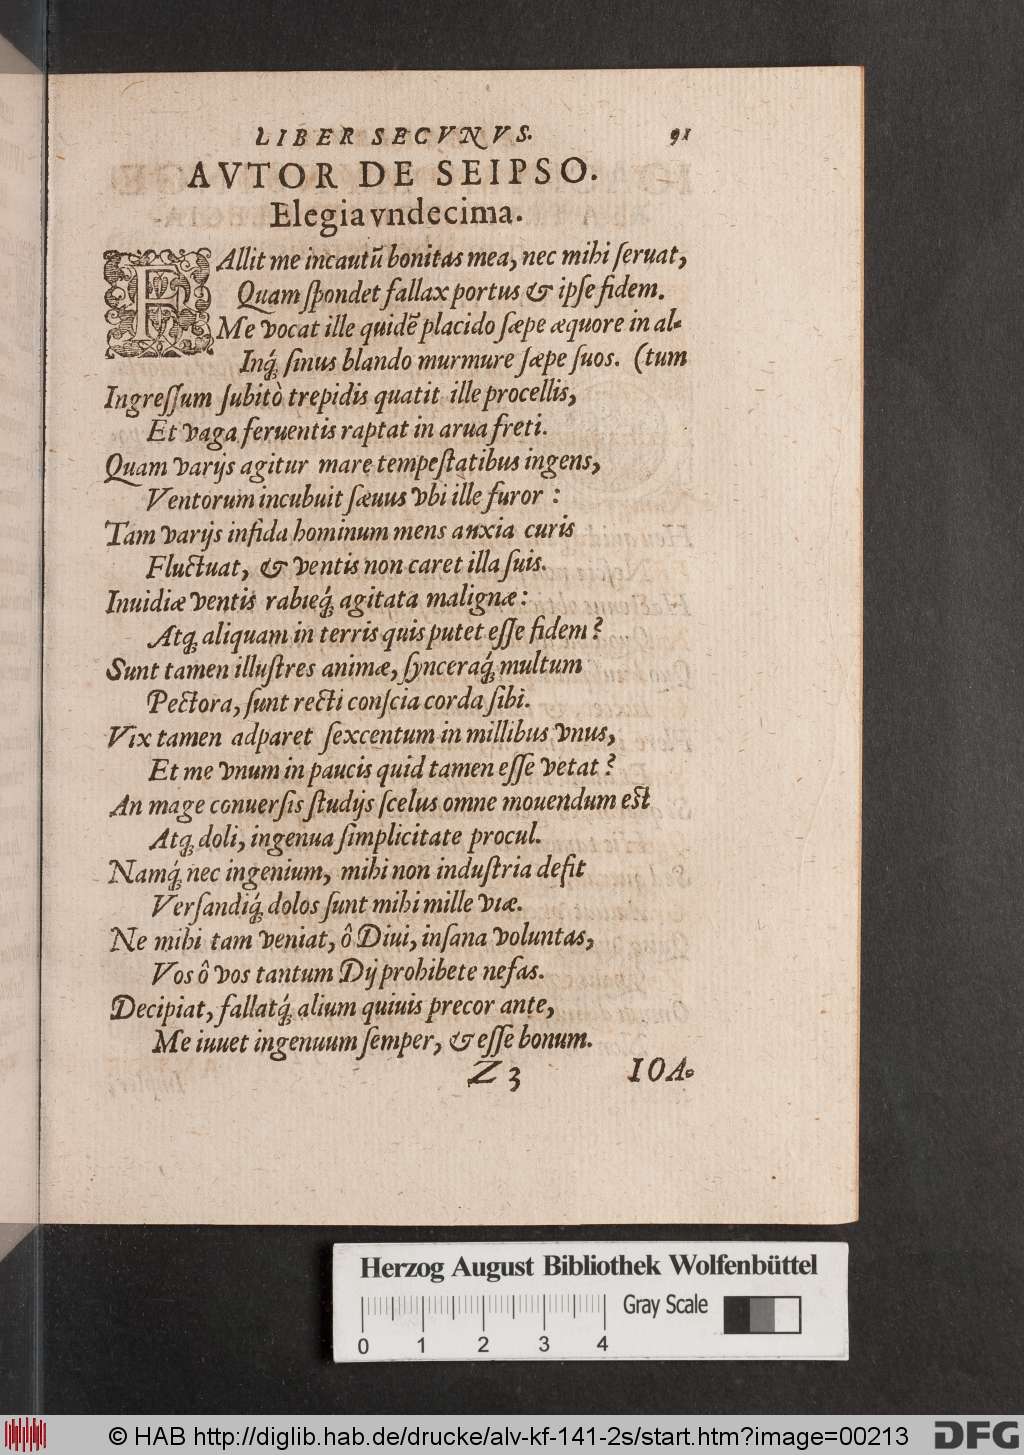 LIBER SECVNVS. 91
AVTOR DE SEIPSO.
Elegia vndecima.
FAllit me incautũ bonitas mea, nec mihi ſeruat,
Quam ſpondet fallax portus & ipſe fidem.
Me vocat ille quidẽ placido ſæpe æquore in al-
Inq́; ſinus blando murmure ſæpe ſuos. (tum
Ingreſſum ſubitò trepidis quatit ille procellis,
Et vaga feruentis raptat in arua freti.
Quam varijs agitur mare tempeſtatibus ingens,
Ventorum incubuit ſæuus vbi ille furor :
Tam varijs infida hominum mens anxia curis
Fluctuat, & ventis non caret illa ſuis.
Inuidiæ ventis rabieq́; agitata malignæ :
Atq; aliquam in terris quis putet eſſe fidem?
Sunt tamen illuſtres animæ, ſynceraq́; multum
Pectora, ſunt recti conſcia corda ſibi.
Vix tamen adparet ſexcentum in millibus vnus,
Et me vnum in paucis quid tamen eſſe vetat?
An mage conuerſis ſtudijs ſcelus omne mouendum eſt
Atq; doli, ingenua ſimplicitate procul.
Namq́; nec ingenium, mihi non induſtria deſit
Verſandiq́; dolos ſunt mihi mille viæ.
Ne mihi tam veniat, ô Diui, inſana voluntas,
Vos ô vos tantum Dij prohibete nefas.
Decipiat, fallatq́; alium quiuis precor ante,
Me iuuet ingenuum ſemper, & eſſe bonum.
Z 3 IOA-
Herzog August Bibliothek Wolfenbüttel
Gray Scale
0 1 2 3 4
© HAB http://diglib.hab.de/drucke/alv-kf-141-2s/start.htm?image=00213 DFG